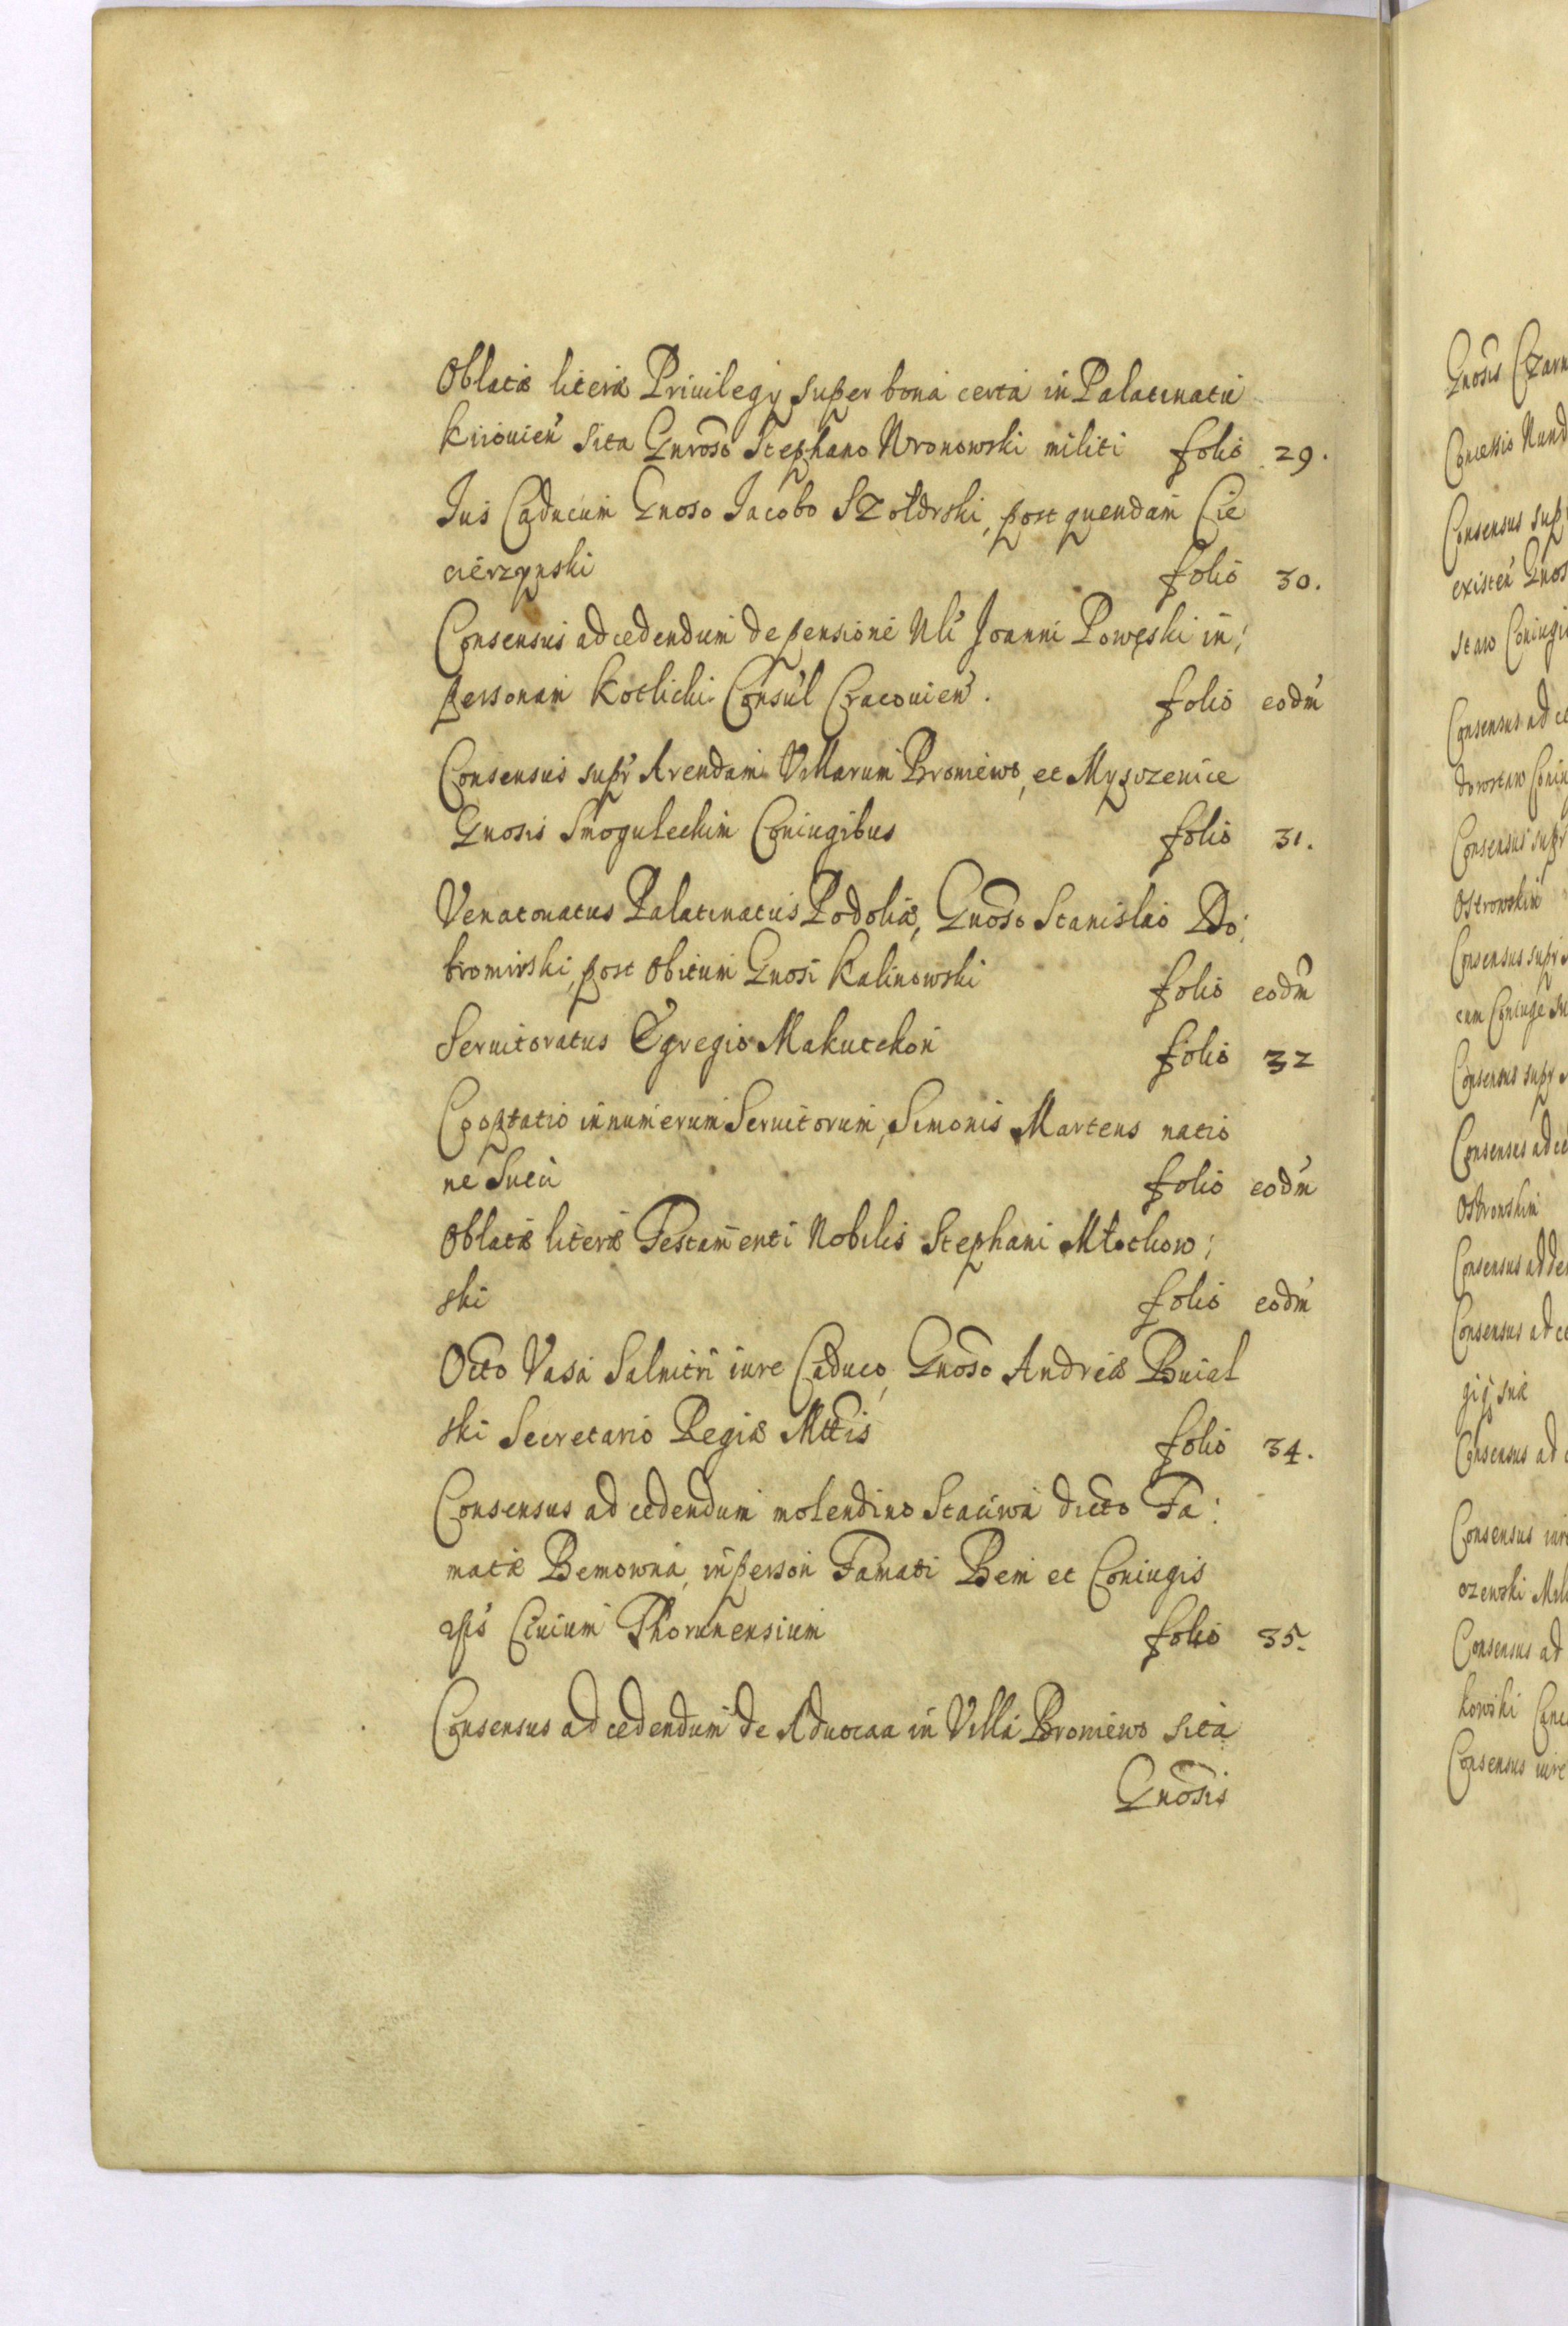 Oblatæ literæ Priuilegÿ super bona certa in Palatinatu
Kiiouien̄ sita Gnroso Stephano Wronowski militi folio 29.
Jus Caducum Gnoso Jacobo SZołdrski, post quendam Cie
cierzynski folio 30.
Consensus ad cedendum de pensione Nli Joanni Powęski in:
personam Kotlicki Consul Cracouien̄. folio eodm̄
Consensus supr Arendam Villarum Broniewo, et Myszczenice
Gnosis Smogulechim Coniugibus folio 31.
Venatoratus Palatinatus Podoliæ, Gnoso Stanislao Do:
bromirski, post obitum Gnosi Kalinowski folio eodm̄
Seruitoratus Egregio Makutchon folio 32
Cooptatio in numerum Seruitorum, Simonis Martens natio
ne Sueci folio eodm̄
Oblatæ literæ Testamenti Nobilis Stephani Młochow:
ski folio eodm̄
Octo Vasa Salnitri iure Caduco, Gnoso Andreæ Buial
ski Secretario Regiæ Mttis folio 34.
Consensus ad cedendum molendino Staciwa dicto Fa:
matæ Bemowna, in person Famati Bem et Coniugis
Ciuium Thorunensium folio 35.
Consensus ad cedendum de Aduocaa in Villa Broniewo sita
Gnosis
Gnosis Czarn
Concessio Nund
Consensus sup
existen̄ Gnos
staw Coniugi
Consensus ad ce
dowstaw Coniu
Consensus supr
Ostrowskim
Consensus supr
cum Coniuge su
Consensus supr
Consenses ad ce
Ostronskim
Consensus ad de
Consensus ad ce
gis suæ
Consensus ad
Consensus iure
ozewski
Consensus ad
kowski
Consensus iure